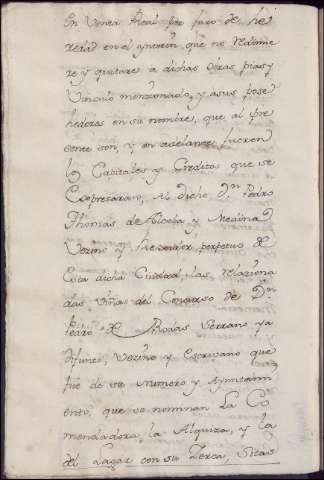 En Venta Real por juro de he
redad en el ynterin que no redimie
re y quitare a dichas obras pias y
Vinculo menzionado, y a sus pose
hedores en su nombre, que al pre
sente son, y en adelante fueren
los Capitales y Creditos que se
Expresaran, Al dicho Dn. Pedro
Thomas de Alcoba y Medina
Vezino y Rexidor perpetuo de
Esta dicha Ciudad, las relaziona
das viñas del Concurso de Dn.
Pedro de Roxas Serrano ya
difunto, Vezino y Escrivano que
fue de su Numero y Ayuntami
ento, que se nominan La Co
mendadora, la Alquiza, y la
del Lagar con su Zerca, Sitas